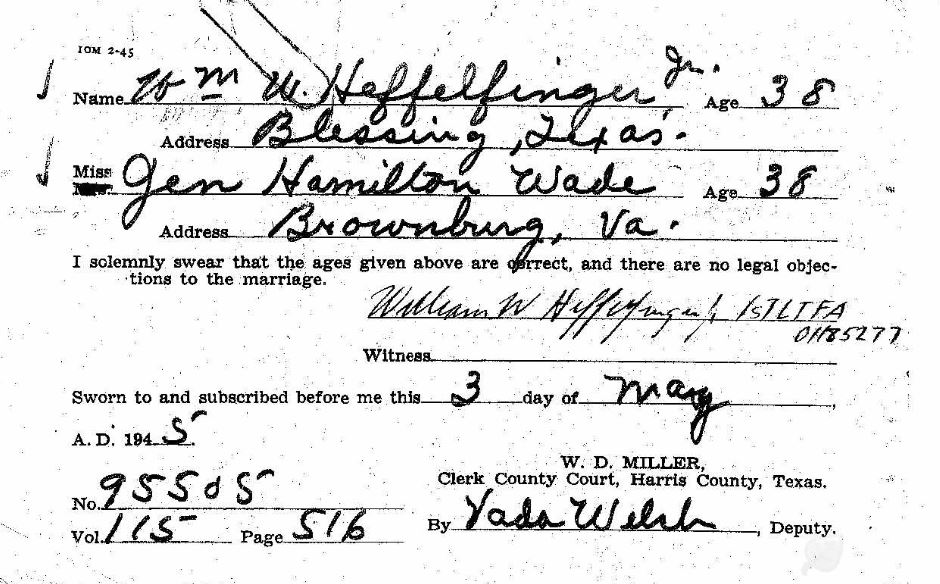 10M 2-45
Name Wm W. Heffelfinger Jr. Age 38
Address Blessing, Texas.
Miss Gen Hamilton Wade Age 38
Address Brownburg, Va.
I solemnly swear that the ages given above are correct, and there are no legal objec-
tions to the marriage.
William W Heffelfinger Jr. 1STLTFA
01185277
Witness
Sworn to and subscribed before me this 3 day of May,
A. D. 1945.
W. D. MILLER,
Clerk County Court, Harris County, Texas.
No. 95505
Vol. 115 Page 516
By Vada Welsh, Deputy.